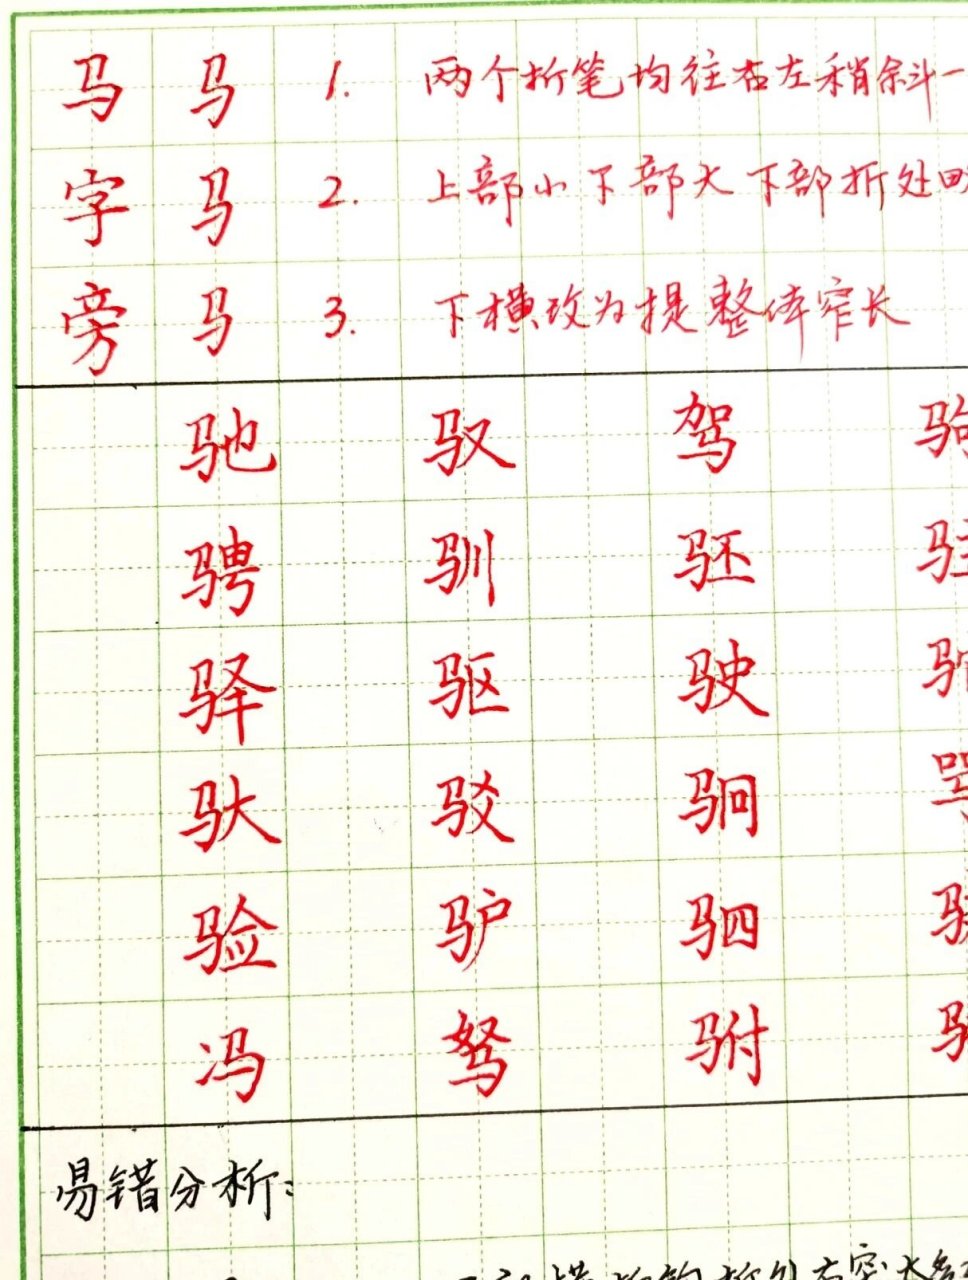 马 马 1. 两个折笔均往右左稍斜一
字 马 2. 上部小下部大下部折处
旁 马 3. 下横改为提整体窄长
驰 驭 驾
骋 驯 驱
驿 驱 驶
驮 驳 駉
验 驴 驷
冯 驽 驸
易错分析: